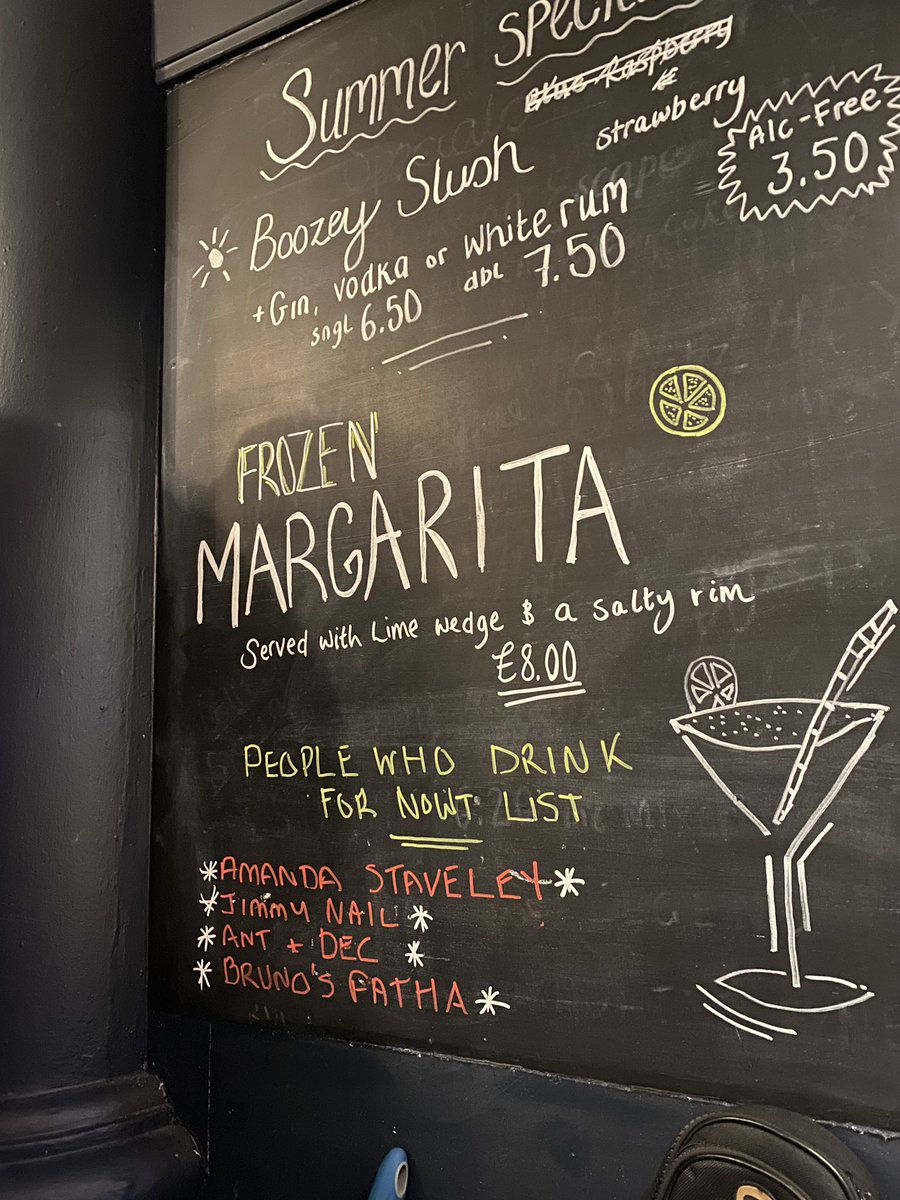 Summer SPECI
Blue Raspberry
&
strawberry
Alc-Free
3.50
Boozey Slush
+Gin, vodka or white rum
sngl 6.50 dbl 7.50
FROZEN
MARGARITA
Served with Lime wedge & a salty rim
£8.00
PEOPLE WHO DRINK
FOR NOWT LIST
*AMANDA STAVELEY*
*JIMMY NAIL*
*ANT + DEC *
*BRUNO'S FATHA*